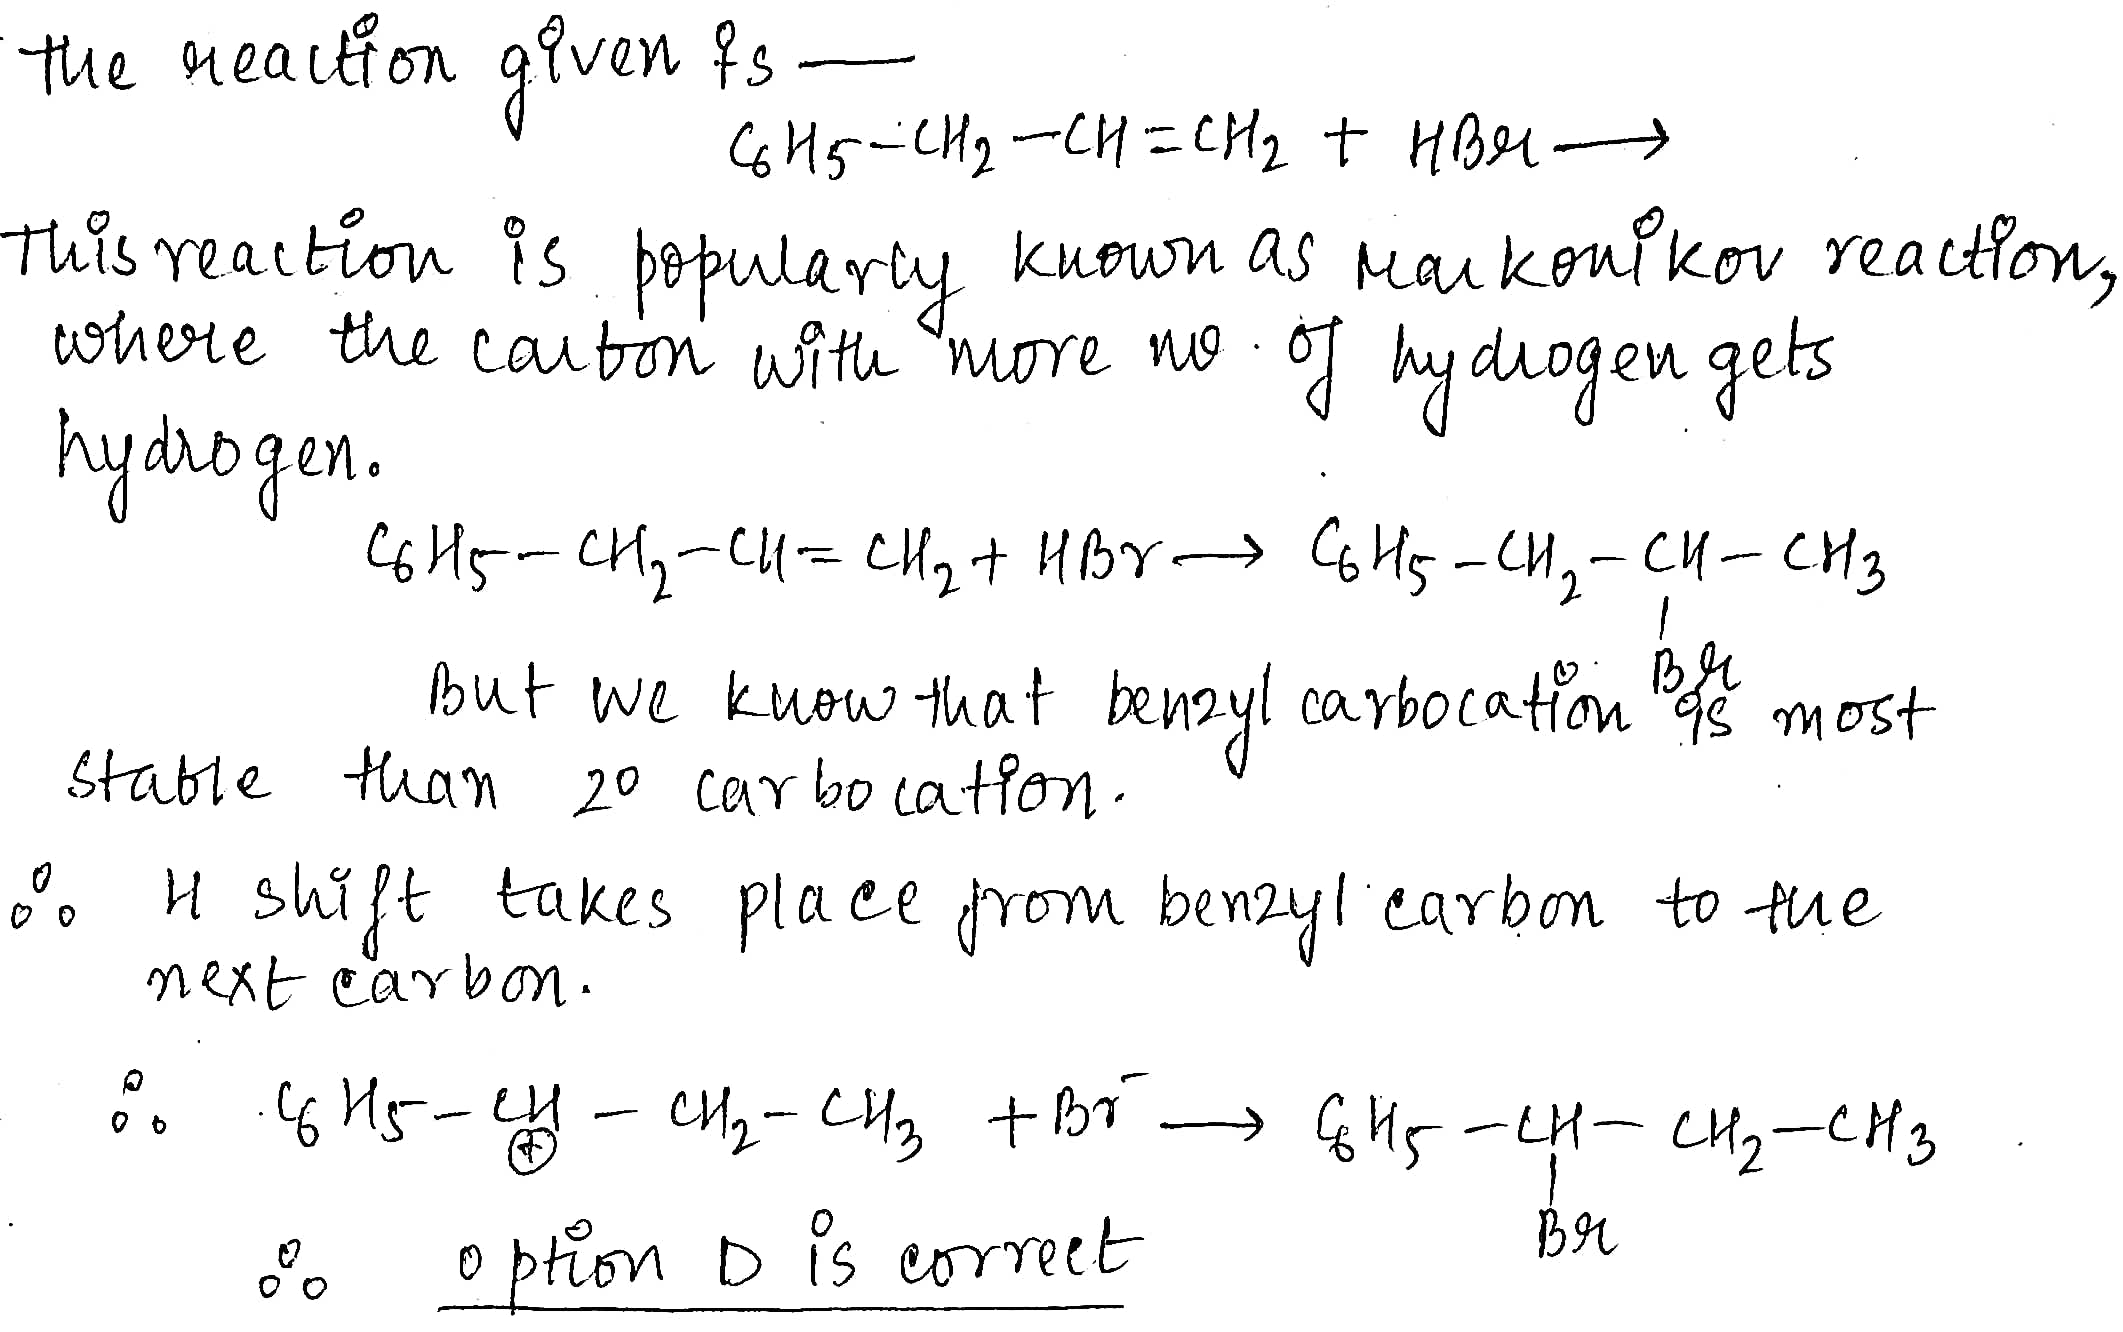 The reaction given is —
C6H5-CH2-CH=CH2 + HBr →
This reaction is popularly known as Markonikov reaction,
where the carbon with more no. of hydrogen gets
hydrogen.
C6H5-CH2-CH=CH2 + HBr → C6H5-CH2-CH-CH3
|
Br
But we know that benzyl carbocation is most
stable than 2° carbocation.
∴ H shift takes place from benzyl carbon to the
next carbon.
∴ C6H5-CH-CH2-CH3 + Br⁻ → C6H5-CH-CH2-CH3
⊕ |
Br
∴ option D is correct